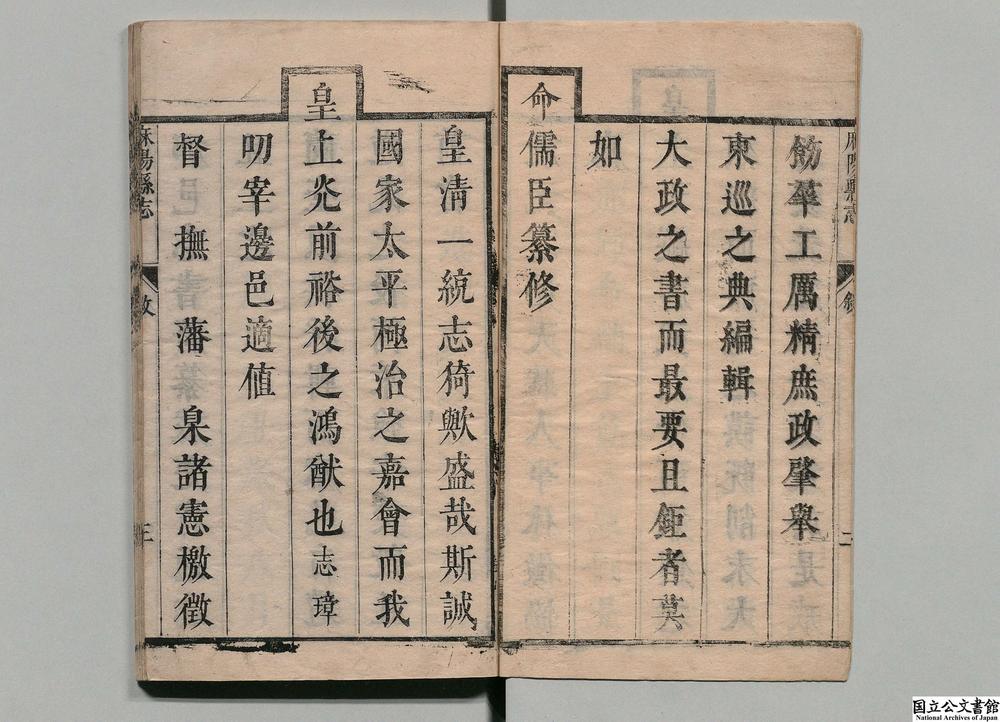 麻陽縣志
敘
二
飭羣工厲精庶政肇舉
東巡之典編輯
大政之書而最要且鉅者莫
如
命儒臣纂修
皇清一統志猗歟盛哉斯誠
國家太平極治之嘉會而我
皇上光前裕後之鴻猷也志璋
叨宰邊邑適值
督撫藩臬諸憲檄徵
麻陽縣志
三
国立公文書館
National Archives of Japan